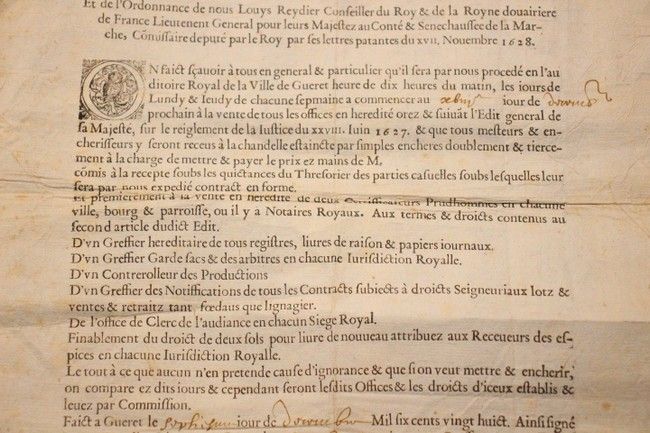 Et de l'Ordonnance de nous Louys Reydier Conseiller du Roy & de la Royne douairiere
de France Lieutenent General pour leurs Majestez au Conté & Senechaussee de la Mar-
che, Cōmissaire deputé par le Roy par ses lettres patantes du xvii. Nouembre 1628.
ON faict sçauoir à tous en general & particulier qu'il sera par nous procedé en l'au
ditoire Royal de la Ville de Gueret heure de dix heures du matin, les iours de
Lundy & Ieudy de chacune sepmaine a commencer au iour de
prochain à la vente de tous les offices en heredité orez & suiuāt l'Edit general de
sa Majesté, sur le reiglement de la Iustice du xxviii. Iuin 1627. & que tous mesteurs & en-
cherisseurs y seront receus à la chandelle estaincte par simples encheres doublement & tierce-
ment à la charge de mettre & payer le prix ez mains de M,
cōmis à la recepte soubs les quictances du Thresorier des parties casuelles soubs lesquelles leur
sera par nous expedié contract en forme.
Et premierement à la vente en heredité de deux Certisseurs Prudhommes en chacune
ville, bourg & parroisse, ou il y a Notaires Royaux. Aux termes & droicts contenus au
second article dudict Edit.
D'vn Greffier hereditaire de tous registres, liures de raison & papiers iournaux.
D'vn Greffier Garde sacs & des arbitres en chacune Iurisdiction Royalle.
D'vn Controrolleur des Productions
D'vn Greffier des Notiffications de tous les Contracts subiects à droicts Seigneuriaux lotz &
ventes & retraitz tant fœdaus que lignagier.
De l'office de Clerc de l'audiance en chacun Siege Royal.
Finablement du droict de deux sols pour liure de nouueau attribuez aux Receueurs des es-
pices en chacune Iurisdiction Royalle.
Le tout à ce que aucun n'en pretende cause d'ignorance & que si on veut mettre & encherir,
on compare ez dits iours & cependant seront lesdits Offices & les droicts d'iceux establis &
leuez par Commission.
Faict a Gueret le iour de Mil six cents vingt huict. Ainsi signé